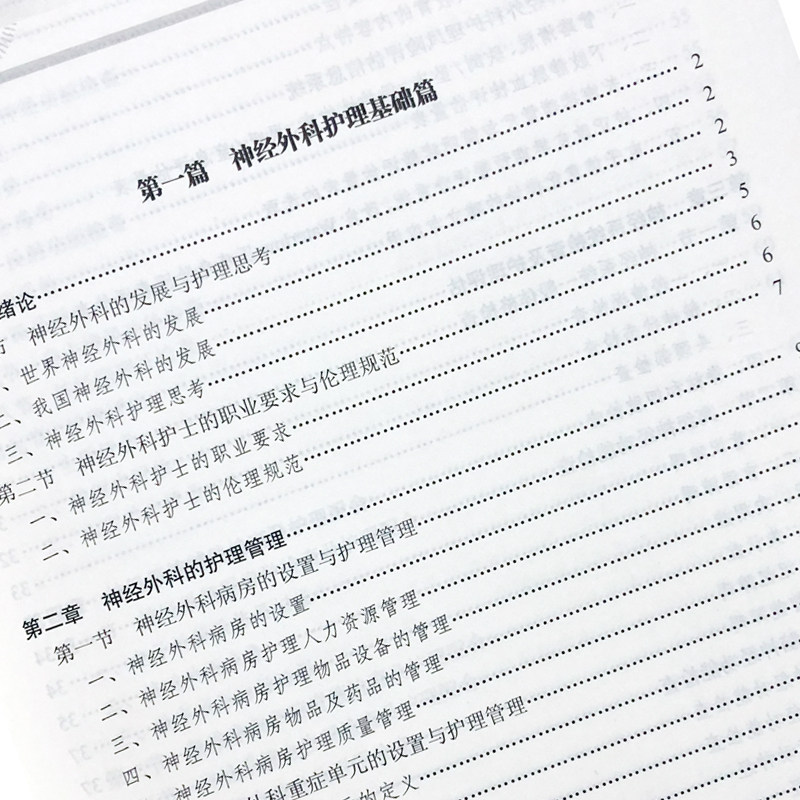 第一篇 神经外科护理基础篇
绪论 2
节 神经外科的发展与护理思考 2
、世界神经外科的发展 2
二、我国神经外科的发展 3
三、神经外科护理思考 5
第二节 神经外科护士的职业要求与伦理规范 6
一、神经外科护士的职业要求 6
二、神经外科护士的伦理规范 7
第二章 神经外科的护理管理
第一节 神经外科病房的设置与护理管理
一、神经外科病房的设置
二、神经外科病房护理人力资源管理
三、神经外科病房护理物品设备的管理
四、神经外科病房物品及药品的管理
神经外科病房护理质量管理
外科重症单元的设置与护理管理
的定义